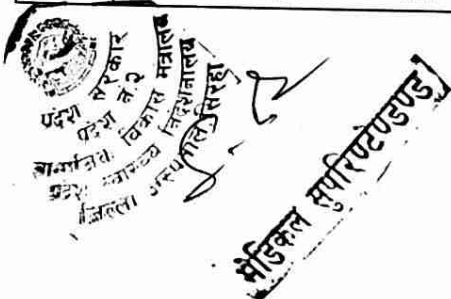 प्रदेश सरकार
प्रदेश नं. २
सामाजिक विकास मन्त्रालय
प्रदेश स्वास्थ्य निर्देशनालय
जिल्ला अस्पताल, सिरहा
मेडिकल सुपरिण्टेण्डेण्ड